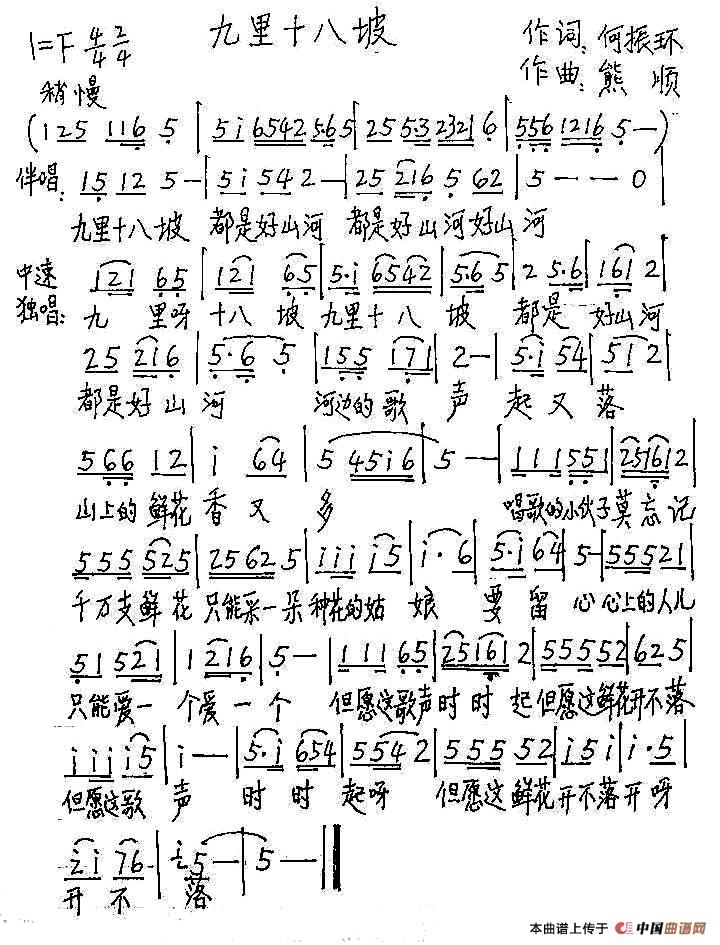 九里十八坡
1=F 4/4 2/4
作词:何振环
作曲:熊 顺
稍慢
(125 116 5 | 5i 6542 565 | 25 5·3 2321 6 | 556 1216 5 — )
伴唱: 15 12 5 — | 5i 54 2 — | 25 216 5 62 | 5 — — 0 |
九里十八坡 都是好山河 都是好山河好山河
中速
121 65 | 121 65 | 5·i 6542 | 5·65 | 2 5·6 | 161 2 |
独唱: 九 里呀 十八 坡 九里十 八 坡 都是 好山河
25 216 | 5·6 5 | 155 171 | 2 — | 5·i 54 | 51 2 |
都是好 山 河 河边的歌 声 起 又 落
566 12 | i 64 | 5 45i6 | 5 — | 111 551 | 25161 2 |
山上的鲜花 香 又 多 唱歌的小伙子莫忘记
555 525 | 2562 5 | iii i5 | i· 6 | 5·i 64 | 5 — | 55521 |
千万支鲜 花 只能采一朵 种花的姑 娘 要 留 心 心上的人儿
51 521 | 1 216 | 5 — | 111 65 | 25161 2 | 55552 | 62 5 |
只能爱一 个爱一个 但愿这歌声时时 起但愿这鲜花开不落
iii i5 | i — — | 5·i 654 | 554 2 | 555 52 | i 5 i | i· 5 |
但愿这歌 声 时 时 起呀 但愿这鲜花开不落开呀
i i 76 | i 5 — | 5 — ‖
开 不 落
本曲谱上传于 中国曲谱网